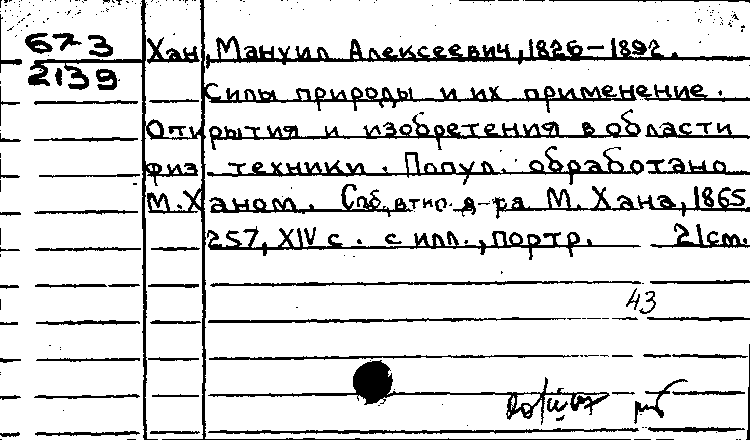 67-3
2139
Хан, Мануил Алексеевич, 1826-1892.
Силы природы и их применение.
Открытия и изобретения в области
физ. техники. Попул. обработано
М. Ханом. Спб, втип. д-ра М. Хана, 1865
257, XIV с. с илл., портр. 21см.
43